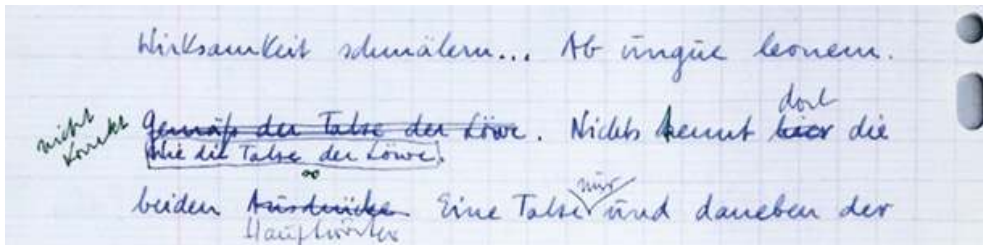 Wirksamkeit schmälern... Ab ungue leonem.
nicht korrekt
Gemäß der Tatze der Löwe. Nichts trennt hier dort die
Wie die Tatze der Löwe.
beiden Ausdrücke Eine Tatze nur und daneben der
Hauptwörter